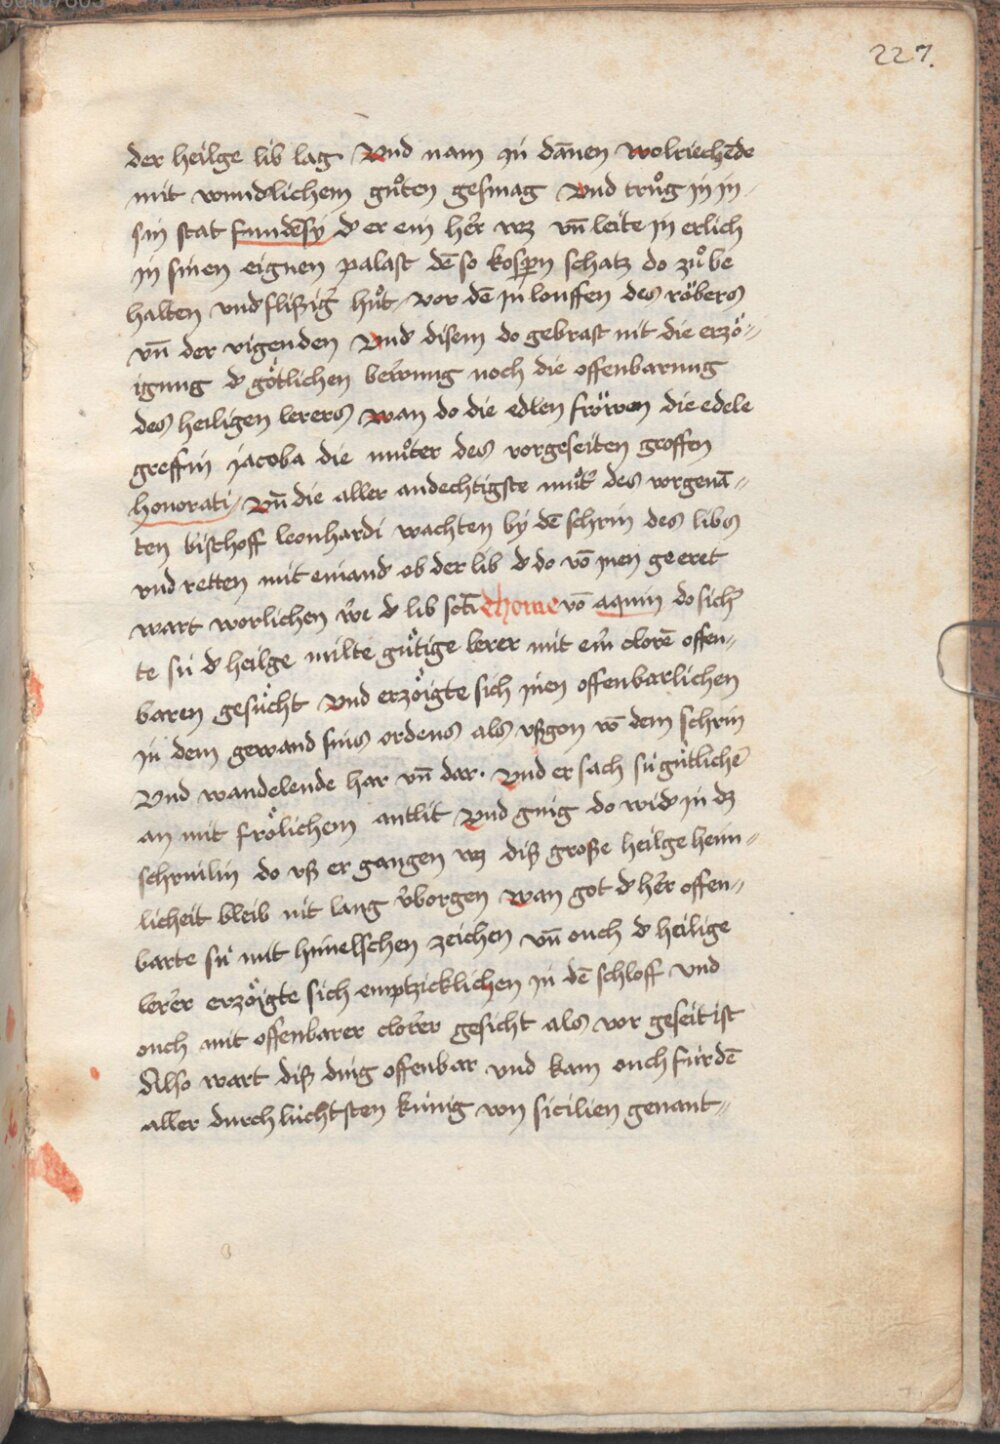 227.
der heilge lib lag Vnd nam in dānen wolriechēde
mit wundlichem gůten gesmag Vnd trůg in in
sin stat fundēsy d er ein h'er wz vn̄ leite in erlich
in sinen eignen palast dē so kospern schatz do zů be
halten vnd flißig' hůt vor dē in louffen des röbers
vn̄ der vigenden Vnd disem do gebrast nit die erzö-
igung d götlichen bewnung noch die offenbarung
des heiligen lerers wan do die edlen fröwen die edele
greffin jacoba die můter des vorgeseiten groffen
honorati / Vn̄ die aller andechtigste můt' des vorgenā-
ten bischoff leonhardi wachten by dē schrin des libs
vnd retten mit einand ob der lib d do vō inen geeret
wart worlichen w'e d lib scti Thome vō aquin do sich'
te sü d heilge milte gütige lerer mit eim clorē offen-
baren gesücht Vnd erzöigte sich inen offenbarlichen
in dem gewand sins ordens als vßgon vō dem schrin
Vnd wandelende har vn̄ dar. Vnd er sach sü gütlichē
an mit frölichem antlit Vnd gnig do wid in dz
schrinlin do vß er gangen wz diß große heilge heim-
licheit bleib nit lang v'borgen wan got d h'er offen-
barte sü mit himelschen zeichen vn̄ ouch d heilige
lerer erzöigte sich emptzicklichen in dē schloff vnd
ouch mit offenbarer clorer gesicht als vor geseit ist
Also wart diß ding offenbar vnd kam ouch für dē
aller durchlüchtsten künig von sicilien genant-